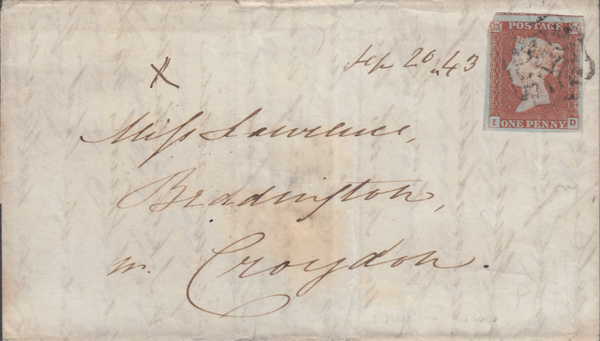 POSTAGE
Sep 20 43
ONE PENNY
X
Miss Lawrence,
Beddington,
nr. Croydon.